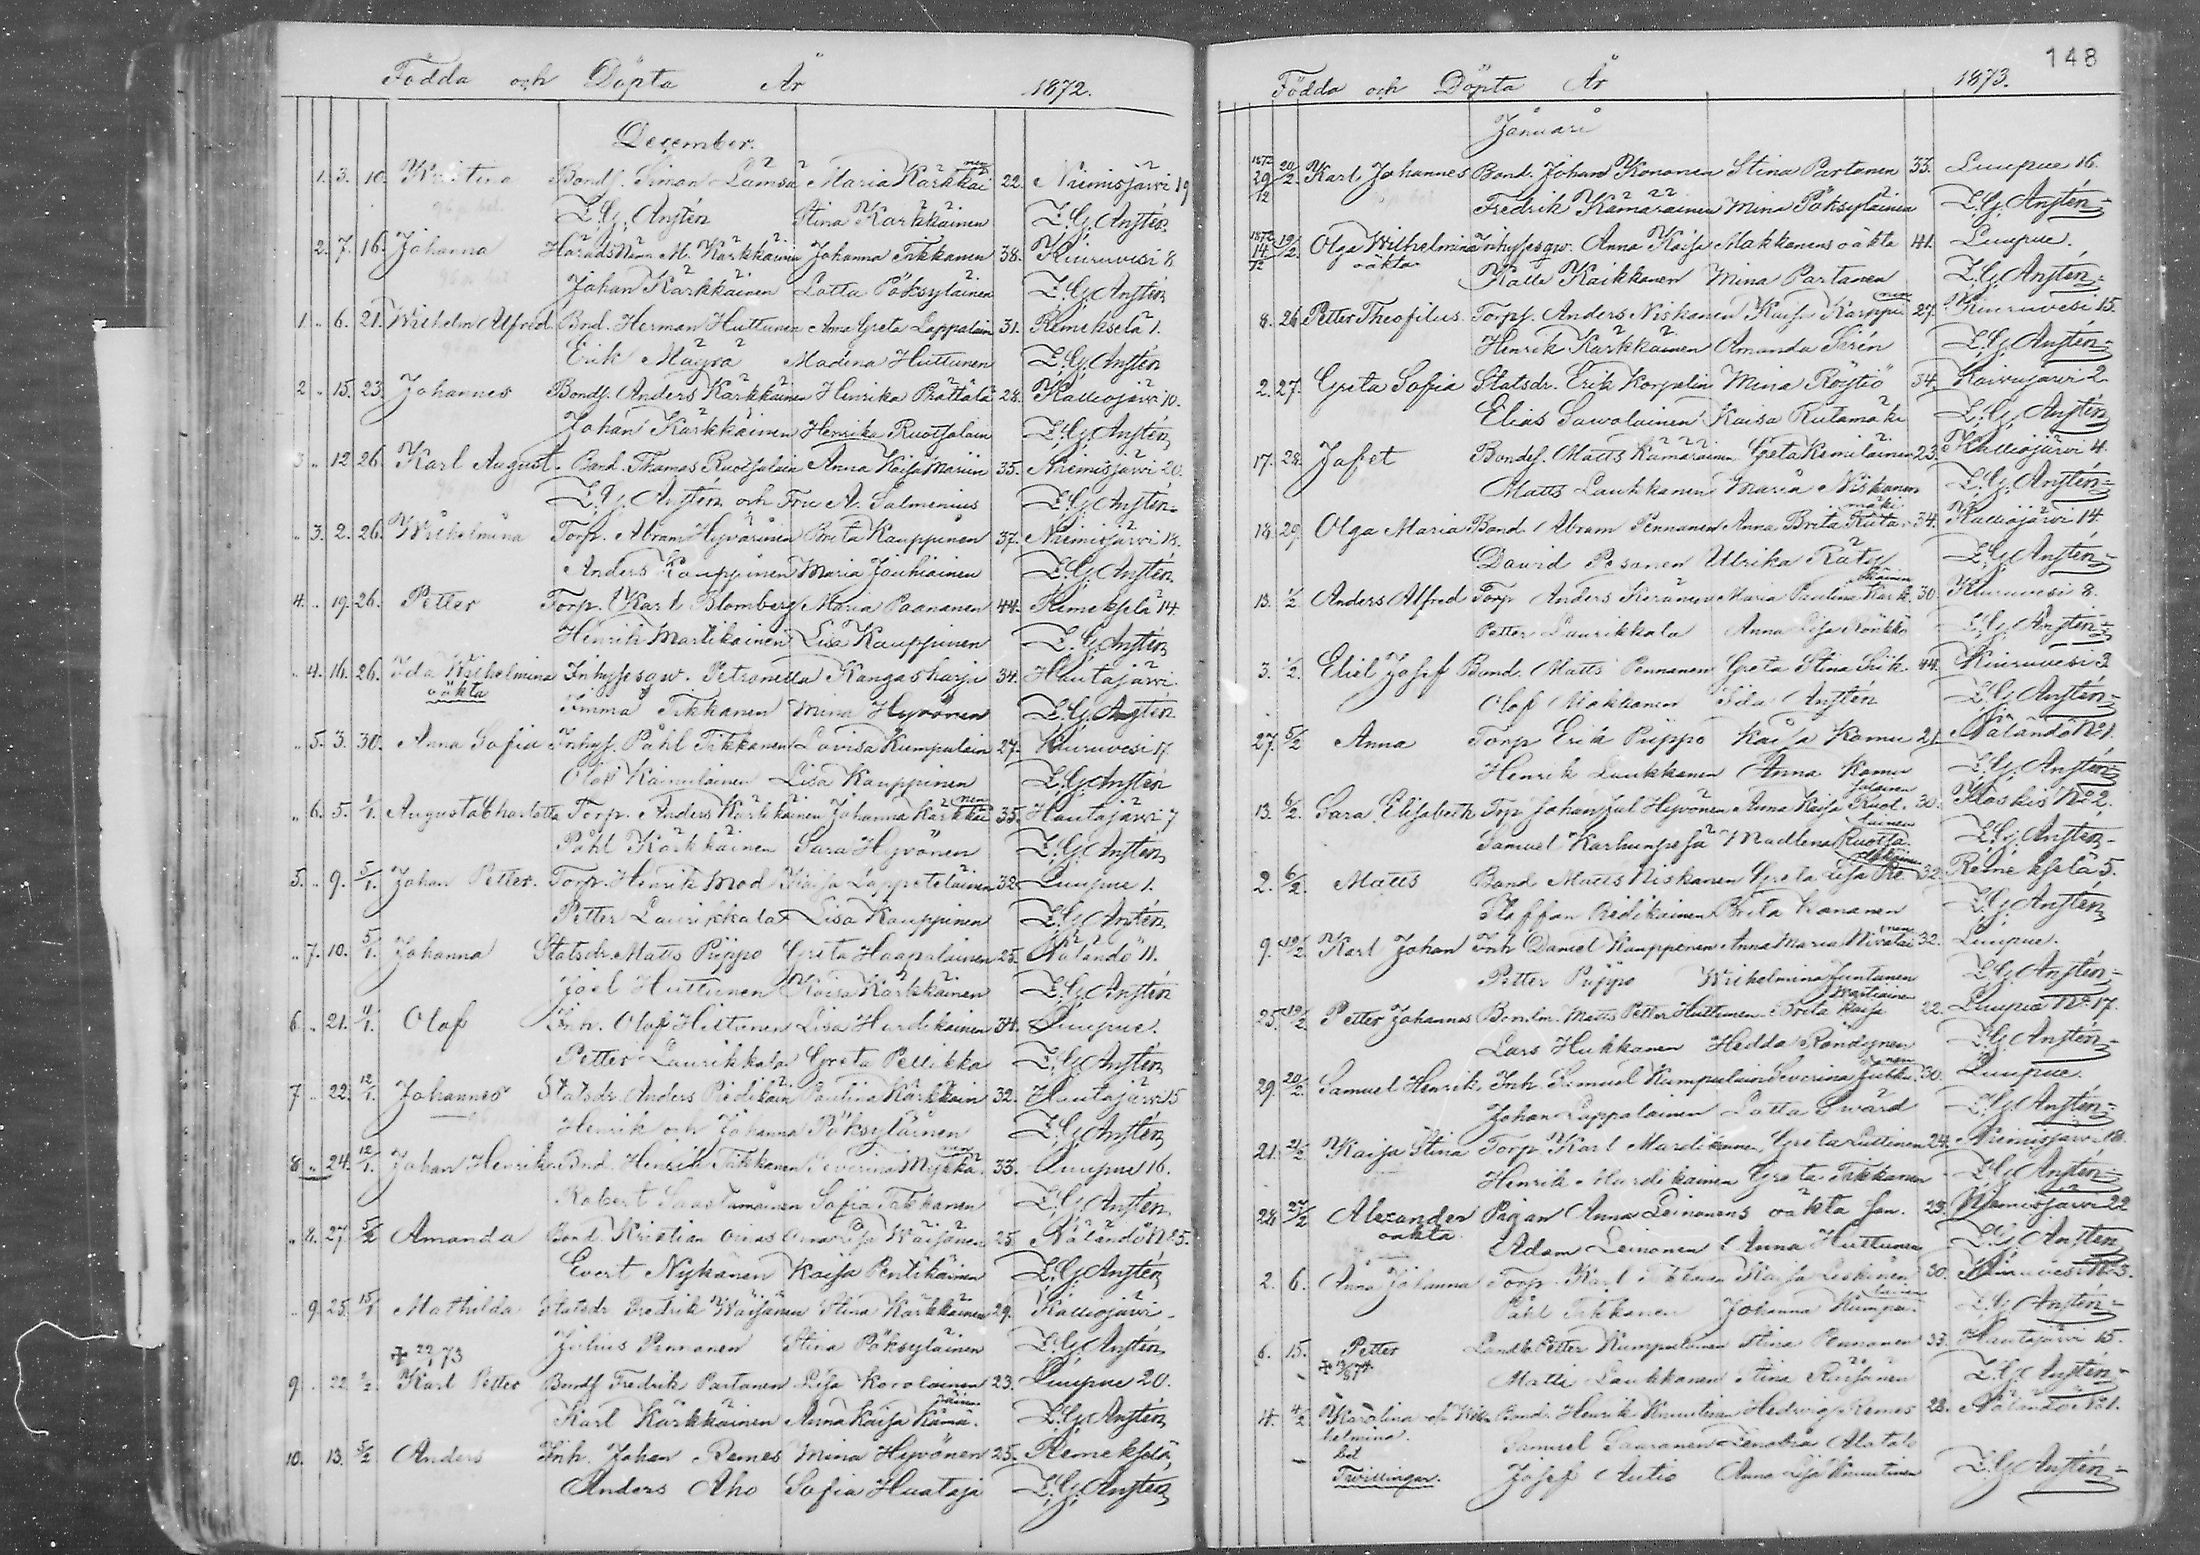 Födda och Döpta År 1872.
December.
1. 3. 10. Kristina Bondf. Simon Lämsä Maria Kärkkäinen 22. Niemisjärvi 19
Z. G. Anstén Stina Kärkkäinen Z. G. Anstén
2. 7. 16. Johanna M. Kärkkäinen Johanna Tikkanen 38. Kiuruvesi 8
Johan Kärkkäinen Lotta Pöksyläinen Z. G. Anstén
1 „ 6. 21. Wilhelm Alfred Bnd. Herman Huttunen Anna Greta Lappalain 31. Remekselä 1.
Erik Mäyrä Madlena Huttunen Z. G. Anstén
2 „ 15. 23. Johannes Bondf. Anders Kärkkäinen Henrika Prättälä 28. Kalliojärvi 10.
Johan Kärkkäinen Henrika Ruotsalain Z. G. Anstén
3 „ 12 26. Karl August Bond. Thomas Ruotsalain Anna Kaisa 35. Niemisjärvi 20.
Z. G. Anstén och Fru A. Salmenius Z. G. Anstén
„ 3. 2. 26. Wilhelmina Torp. Abram Hyvärinen Brita Kauppinen 37. Niemisjärvi 18.
Anders Kauppinen Maria Jouhiainen Z. G. Anstén
4. „ 19. 26. Petter Torp. Karl Blomberg Maria Paananen 44. Remekselä 14.
Henrik Martikainen Lisa Kauppinen Z. G. Anstén
„ 4. 16. 26. Ida Wilhelmina oäkta Inhysesqw. Petronella Kangasharju 34. Hautajärvi.
Tikkanen Mina Hyvönen Z. G. Anstén
„ 5. 3. 30. Anna Sofia Inhys. Påhl Tikkanen Lovisa Kumpulain 27. Kiuruvesi 17.
Olof Kainulainen Lisa Kauppinen Z. G. Anstén
„ 6. 5. Augusta Charlotta Torp. Anders Kärkkäinen Johanna Kärkkäinen 35. Hautajärvi 7
Påhl Kärkkäinen Sara Hyvönen Z. G. Anstén
5. „ 9. 5/1. Johan Petter. Torp. Henrik Mod Kaisa Lappeteläinen 32 Luupue 1.
Petter Laurikkala Lisa Kauppinen Z. G. Anstén
„ 7. 10. 5/1. Johanna Statsdr. Matts Piippo Greta Haapalainen 25. Näläntö 11.
Joel Huttunen Kaisa Kärkkäinen Z. G. Anstén
6 „ 21. Olof Inh. Olof Hiltunen Lisa Hurdikainen 34. Luupue.
Petter Laurikkala Greta Pellikka Z. G. Anstén
7 „ 22. 12/1. Johannes Statsdr. Anders Ridikäin Paulina Kärkkäin 32. Hautajärvi 15
Henrik och Johanna Pöksyläinen Z. G. Anstén
8 „ 24. 12/1. Johan Henrik Bnd. Henrik Tikkanen Severina Mykkänen 33. Luupue 16.
Robert Saastamoinen Sofia Tikkanen Z. G. Anstén
„ 8. 27. 5/2 Amanda Bond. Kristian Oinas Anna Lisa Wäisänen 25. Näläntö N 25.
Evert Nykänen Kaisa Pentikäinen Z. G. Anstén
„ 9. 25. 15/1 Mathilda Statsdr Fredrik Wäisänen Stina Kärkkäinen 29. Kalliojärvi
Julius Pennanen Stina Pöksyläinen Z. G. Anstén
✝ 22/1 73
9 „ 22. 2/2. Karl Petter Bondf Fredrik Partanen Lisa Korolainen 23. Luupue 20.
Karl Kärkkäinen Anna Kaisa Kämäräinen Z. G. Anstén
10. 13. 5/2 Anders Inh. Johan Remes Mina Hyvönen 25. Remekselä,
Anders Aho Sofia Huataja Z. G. Anstén
148
Födda och Döpta År 1873.
Januari
1872 29/12 20/2. Karl Johannes Bond. Johan Kononen Stina Partanen 33. Luupue 16.
Fredrik Kämäräinen Mina Pöksyläinen Z. G. Anstén
1872 14/12 19/2. Olga Wilhelmina oäkta Inhysesqw. Anna Kaisa Makkonens oäkta 41. Luupue.
Kalle Kaikkonen Mina Partanen Z. G. Anstén
8. 26 Petter Theofilus Torps. Anders Niskanen Kaisa Karppinen 27. Kiuruvesi 15.
Henrik Kärkkäinen Amanda Sirén Z. G. Anstén
2. 27. Greta Sofia Statsdr. Erik Korpelin Mina Röytiö 34. Koivujärvi 2.
Elias Sawolainen Kaisa Rutamäki Z. G. Anstén
17. 28. Jafet Bondes. Matts Kämäräinen Greta Kemiläinen 23. Kalliojärvi 4.
Matts Laukkanen Maria Niskanen Z. G. Anstén
18. 29. Olga Maria Bond. Abram Pennanen Anna Brita Rutamäki 34. Kalliojärvi 14.
David Posanen Ulrika Räty Z. G. Anstén
13. 1/2 Anders Alfred Torp Anders Keränen Maria Paulina Kärkkäinen 30 Kiuruvesi 8.
Petter Laurikkala Anna Lisa Rönkkö Z. G. Anstén
3. 1/2. Eliel Josef Bond. Matts Pennanen Greta Stina 44. Kiuruvesi 3
Olof Makkonen Ida Anstén Z. G. Anstén
27. 5/2 Anna Torp Erik Piippo Kaisa Komu 21. Näläntö No 1.
Henrik Laukkanen Anna Komu Z. G. Anstén
13. 6/2. Sara Elisabeth Torp Johan Jul Hyvönen Anna Kaisa Ruotsalainen 30. Koskis No 2.
Samuel Karhunpesä Madlena Ruotsalainen Z. G. Anstén
2. 6/2. Matts Bond Matts Niskanen Greta Lisa 32. Remekselä 5.
Staffan Ridikainen Brita Kananen Z. G. Anstén
9. 19/2 Karl Johan Inh Daniel Kauppinen Anna Maria 32. Luupue.
Petter Piippo Wilhelmina Juntunen Z. G. Anstén
25. 19/2 Petter Johannes Matts Petter Huttunen Brita Kaisa Martiainen 22. Luupue No 17.
Lars Hukkanen Hedda Röndynen Z. G. Anstén
29. 20/2. Samuel Henrik Inh. Samuel Kumpulain Severina 30. Luupue.
Johan Lappalainen Lotta Swärd Z. G. Anstén
21. 21/2 Kaisa Stina Torp. Karl Murdikainen Greta 24. Niemisjärvi 18.
Henrik Murdikainen Greta Tikkanen Z. G. Anstén
24. 27/2 Alexander oäkta Pigan Anna Leinonens oäkta son. 23. Niemisjärvi 22
Adam Leinonen Anna Huttunen Z. G. Anstén
2. 6. Anna Johanna Torp. Karl Tikkanen Kaisa Leskinen 30. Kiuruvesi No 3.
Påhl Tikkanen Johanna Kumpulainen Z. G. Anstén
6. 15. Petter Landb. Petter Kumpulainen Stina Pennanen 33. Hautajärvi 15.
Matti Laukkanen Stina Räisänen Z. G. Anstén
4. 4/2 Karolina o. Wilhelmina. Bond. Henrik Knuutinen Hedvig Remes 22. Näläntö No 1.
Samuel Alatalo
Twillingar. Josef Autio Anna Lisa Knuutinen Z. G. Anstén